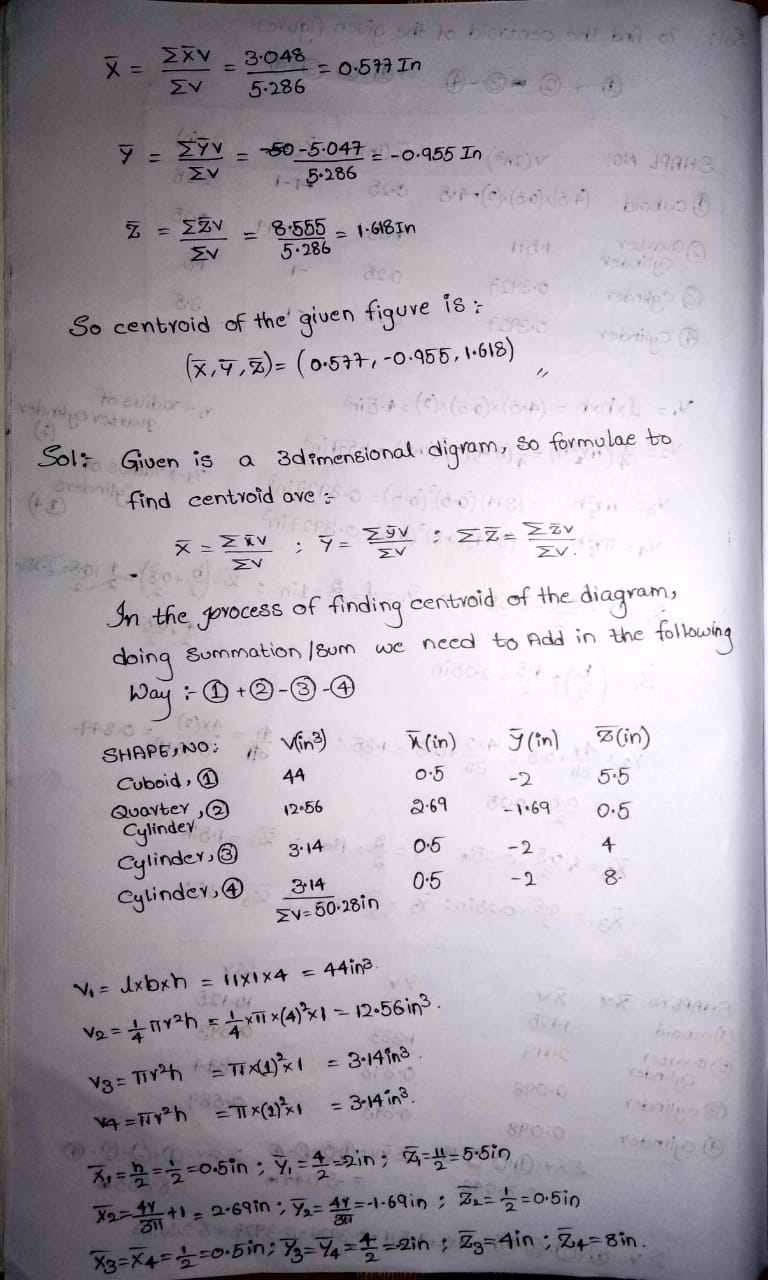 x̄ = Σx̄v/Σv = 3.048/5.286 = 0.577 In
ȳ = Σȳv/Σv = -5.047/5.286 = -0.955 In
z̄ = Σz̄v/Σv = 8.555/5.286 = 1.618 In
So centroid of the given figure is :-
(x̄, ȳ, z̄) = (0.577, -0.955, 1.618) //
Sol:- Given is a 3dimensional digram, so formulae to
find centroid are :-
x̄ = Σx̄v/Σv ; ȳ = Σȳv/Σv ; Σz̄ = Σz̄v/Σv.
In the process of finding centroid of the diagram,
doing summation/sum we need to Add in the following
Way :- ① + ② - ③ - ④
SHAPE, NO: V(in³) x̄(in) ȳ(in) z̄(in)
Cuboid, ① 44 0.5 -2 5.5
Quarter, ② 12.56 2.69 -1.69 0.5
Cylinder
Cylinder, ③ 3.14 0.5 -2 4
Cylinder, ④ 3.14 0.5 -2 8
Σv = 50.28in
V₁ = lxbxh = 11x1x4 = 44in³.
V₂ = 1/4 πr²h = 1/4 xπx(4)²x1 = 12.56in³.
V₃ = πr²h = πx(1)²x1 = 3.14in³.
V₄ = πr²h = πx(1)²x1 = 3.14in³.
x̄₁ = h/2 = 1/2 = 0.5in ; ȳ₁ = 4/2 = -2in ; z̄₁ = 11/2 = 5.5in
x̄₂ = 4r/3π + 1 = 2.69in ; ȳ₂ = 4r/3π = -1.69in ; z̄₂ = 1/2 = 0.5in
x̄₃ = x̄₄ = 1/2 = 0.5in ; ȳ₃ = ȳ₄ = 4/2 = -2in ; z̄₃ = 4in ; z̄₄ = 8in.